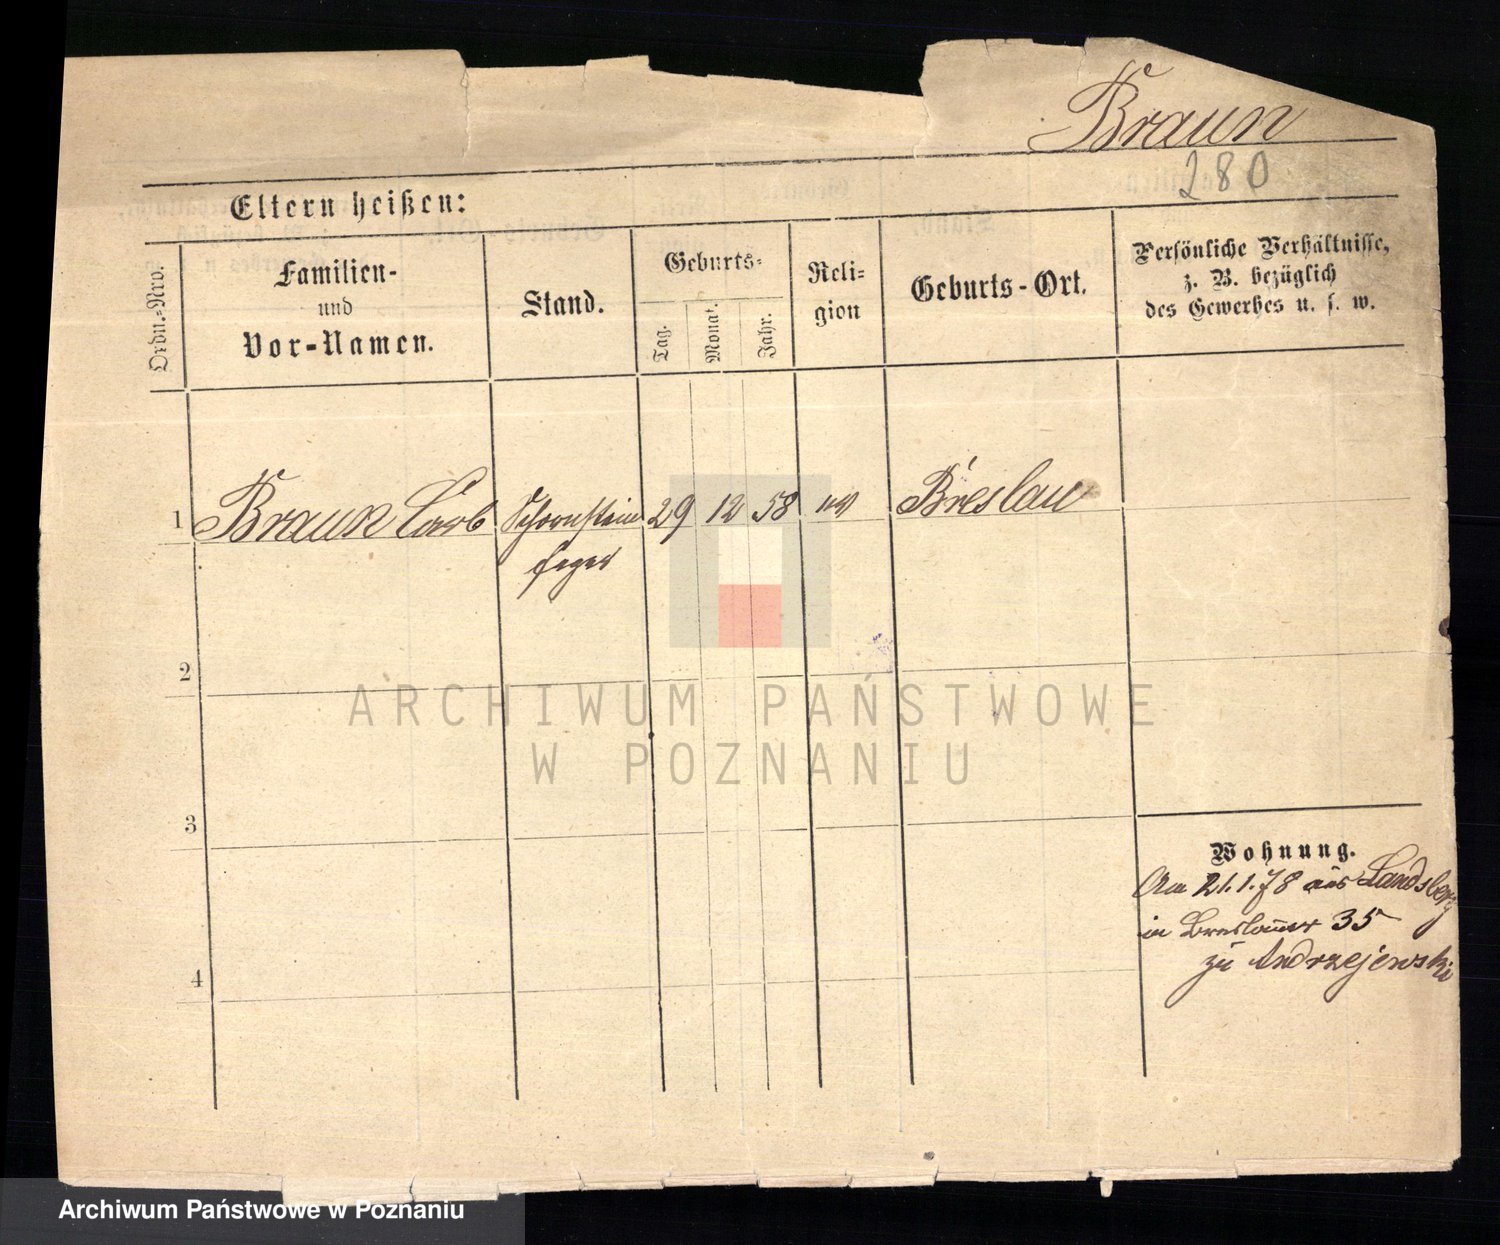 Braun
280
Eltern heißen:
Ordn.-Nro.
Familien-
und
Vor-Namen.
Stand.
Geburts-
Tag.
Monat.
Jahr.
Reli-
gion
Geburts-Ort.
Persönliche Verhältnisse,
z. B. bezüglich
des Gewerbes u. s. w.
1 Braun Carl Schornstein 29 12 58 ev Breslau
feger
2
ARCHIWUM PAŃSTWOWE
W POZNANIU
3
Wohnung.
Am 21.1.78 aus Landsberg
in Breslauer 35
zu Andrzejewski
4
Archiwum Państwowe w Poznaniu